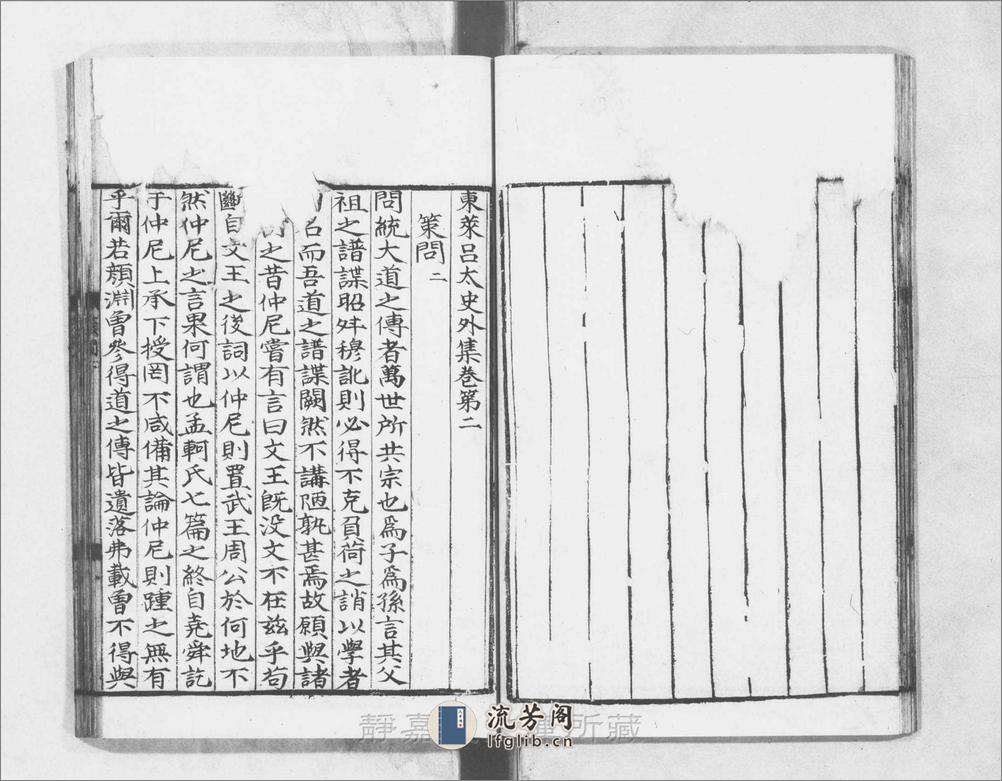 東萊呂太史外集卷第二
策問二
問統大道之傳者萬世所共宗也為子為孫言其父
祖之譜諜昭舛穆訛則必得不克負荷之誚以學者
名而吾道之譜諜闕然不講陋孰甚焉故願與諸
之昔仲尼嘗有言曰文王既没文不在兹乎苟
自文王之後詞以仲尼則置武王周公於何地不
然仲尼之言果何謂也孟軻氏七篇之終自堯舜訖
于仲尼上承下授罔不咸備其論仲尼則踵之無有
乎爾若顔淵曾參得道之傳皆遺落弗載曾不得與
靜嘉 所藏
流芳阁
lfglib.cn